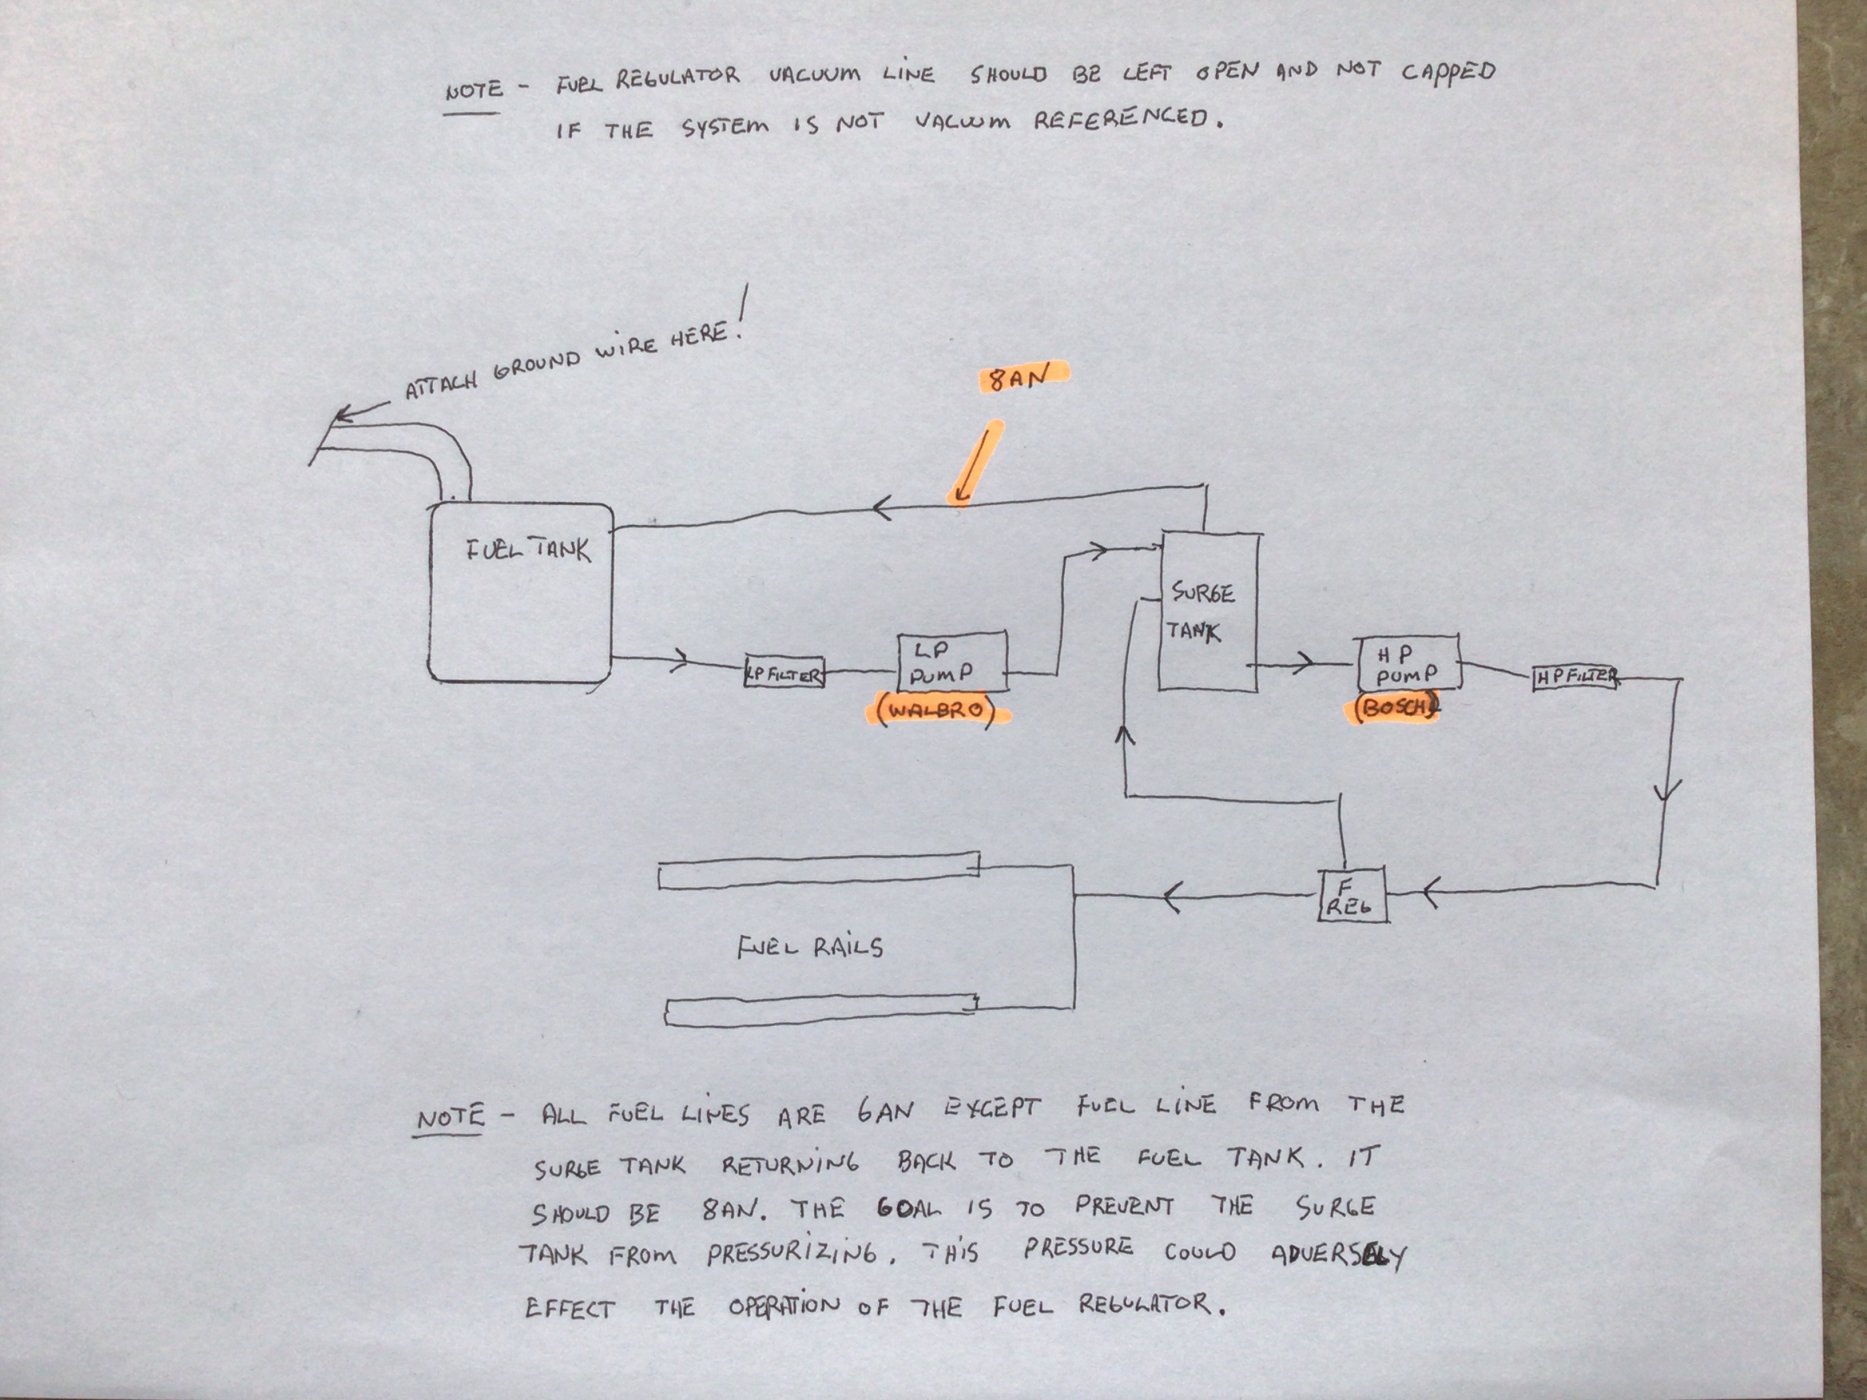 NOTE - FUEL REGULATOR VACUUM LINE SHOULD BE LEFT OPEN AND NOT CAPPED
IF THE SYSTEM IS NOT VACUUM REFERENCED.
ATTACH GROUND WIRE HERE!
8AN
FUEL TANK
SURGE
TANK
LP FILTER
LP
PUMP
(WALBRO)
HP
PUMP
(BOSCH)
HP FILTER
F
REG
FUEL RAILS
NOTE - ALL FUEL LINES ARE 6AN EXCEPT FUEL LINE FROM THE
SURGE TANK RETURNING BACK TO THE FUEL TANK. IT
SHOULD BE 8AN. THE GOAL IS TO PREVENT THE SURGE
TANK FROM PRESSURIZING. THIS PRESSURE COULD ADVERSELY
EFFECT THE OPERATION OF THE FUEL REGULATOR.